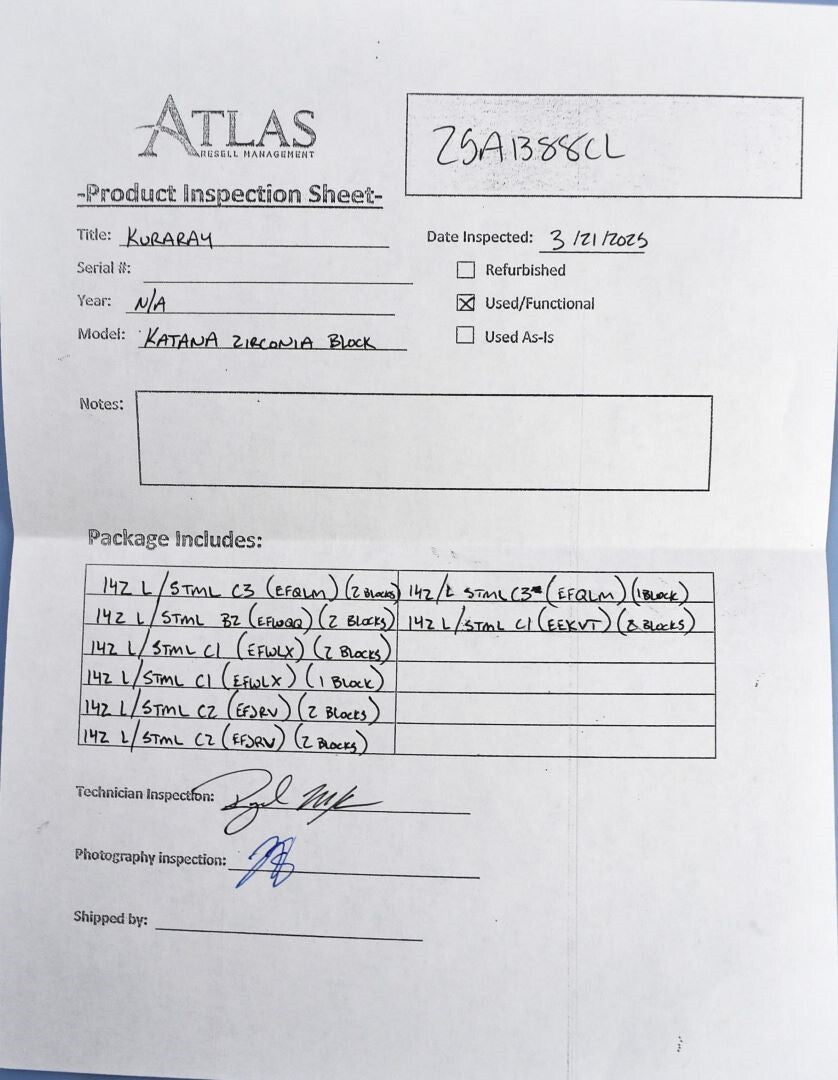 ATLAS
RESELL MANAGEMENT
25A1388CL
-Product Inspection Sheet-
Title: KURARAY
Date Inspected: 3/21/2025
Serial #:
Refurbished
Year: N/A
Used/Functional
Model: KATANA ZIRCONIA BLOCK
Used As-Is
Notes:
Package Includes:
14Z L/STML C3 (EFQLM) (2 Blocks) 14Z/L STML C3 (EFQLM) (1 Block)
14Z L/STML B2 (EFWQQ) (2 Blocks) 14Z L/STML C1 (EEKVT) (2 Blocks)
14Z L/STML C1 (EFWLX) (2 Blocks)
14Z L/STML C1 (EFWLX) (1 Block)
14Z L/STML C2 (EFJRV) (2 Blocks)
14Z L/STML C2 (EFJRV) (2 Blocks)
Technician Inspection:
Photography inspection:
Shipped by: